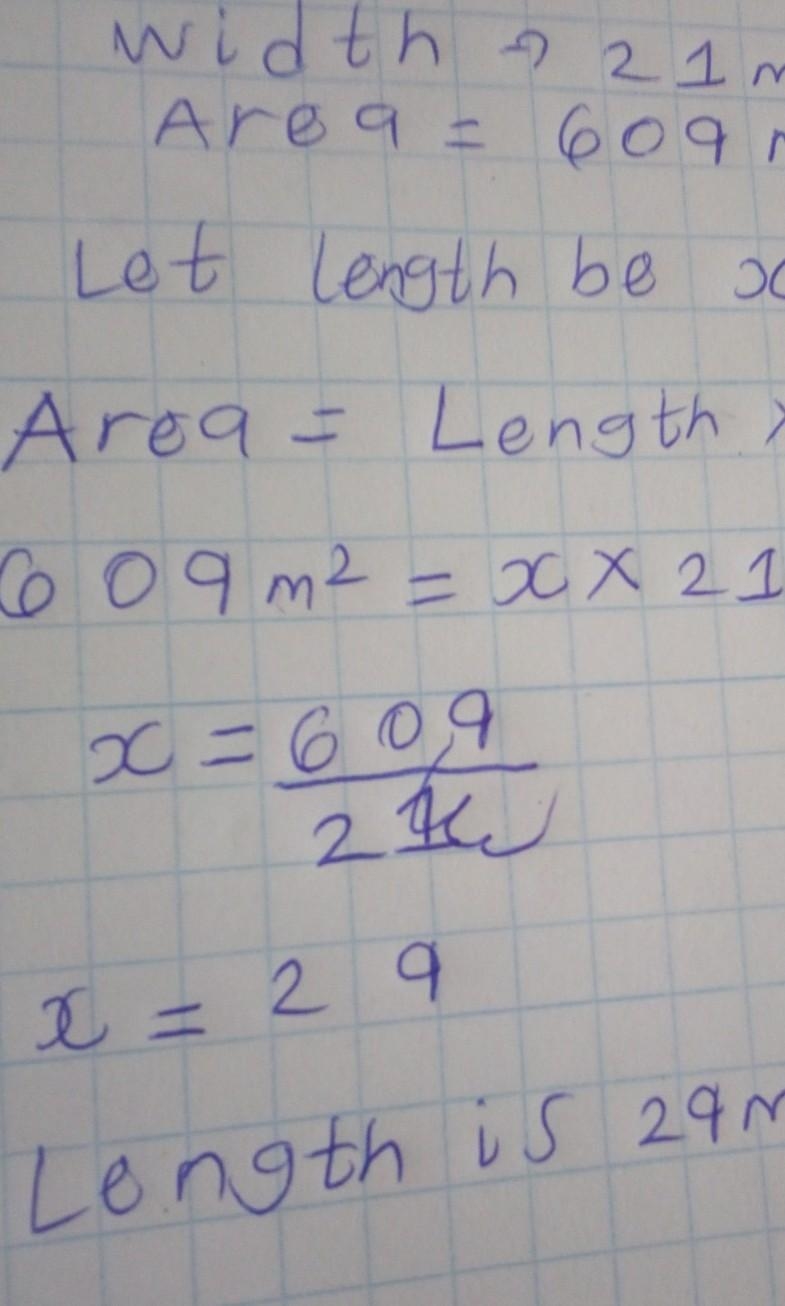 Width → 21 m
Area = 609
Let length be x
Area = Length ×
609 m² = x × 21
x = 609
21
x = 29
Length is 29 m